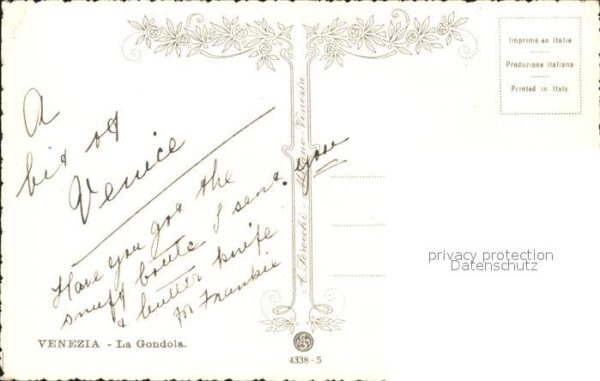 A
bit of
Venice
Have you got the
snuff bottle I sent you
& butter knife
for Frankie
VENEZIA - La Gondola.
4338 - 5
Imprimé en Italie
Produzione italiana
Printed in Italy
Venezia
privacy protection
Datenschutz